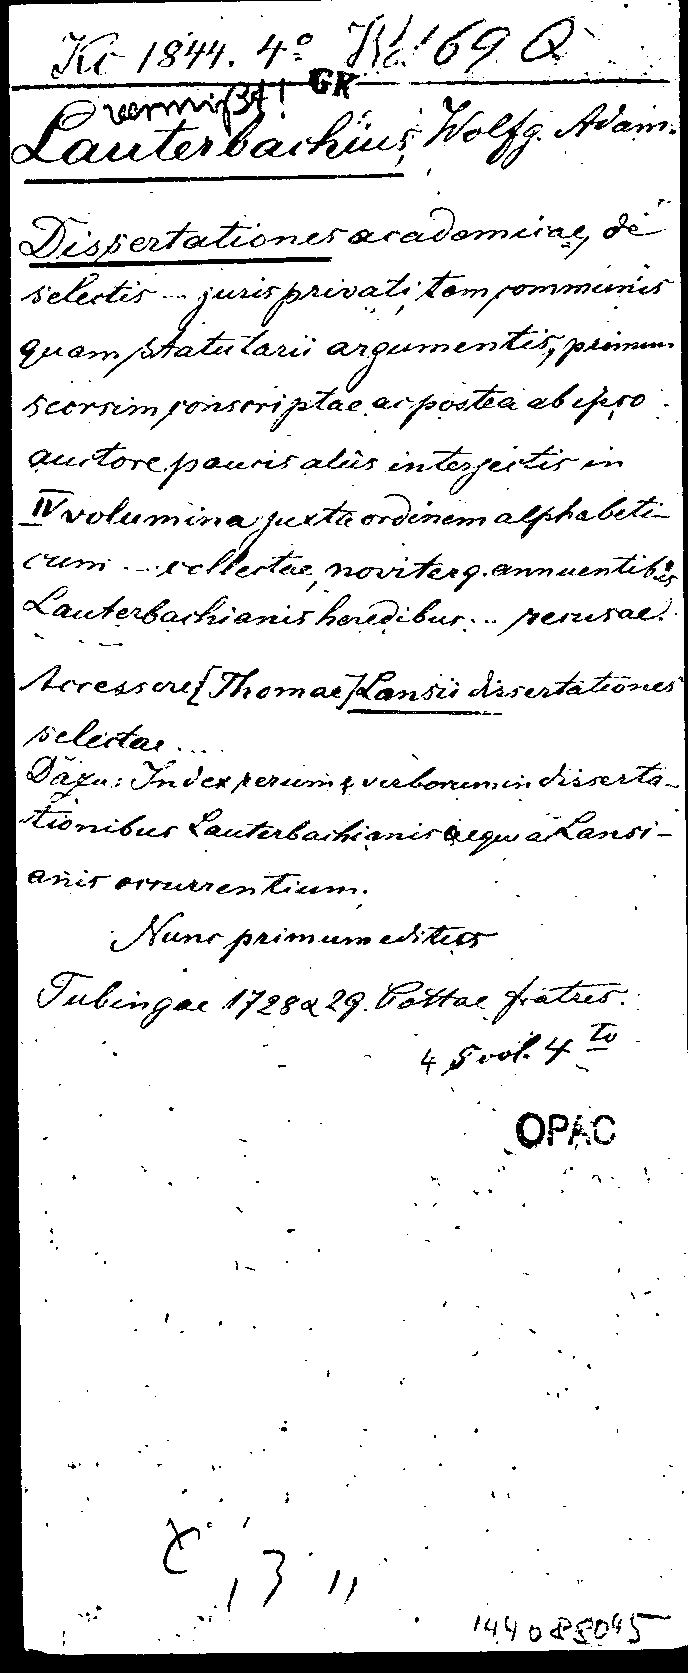 Kc 1844. 4° 169 Q
vermißt! GK
Lauterbachius, Wolfg. Adam.
Dissertationes academicae, de
selectis ... juris privati, tam communis
quam statutarii argumentis, primum
seorsim conscriptae ac postea ab ipso
auctore paucis aliis interjectis in
IV volumina juxta ordinem alphabeti-
cum ... collectae, noviterq. annuentibus
Lauterbachianis heredibus ... recusae.
Accessere [Thomae] Lansii dissertationes
selectae ...
Dazu: Index rerum & verborum in disserta-
tionibus Lauterbachianis aeque ac Lansi-
anis occurrentium.
Nunc primum editus
Tubingae 1728 & 29. Cottae fratres.
4 5 vol. 4to
OPAC
3
144088045